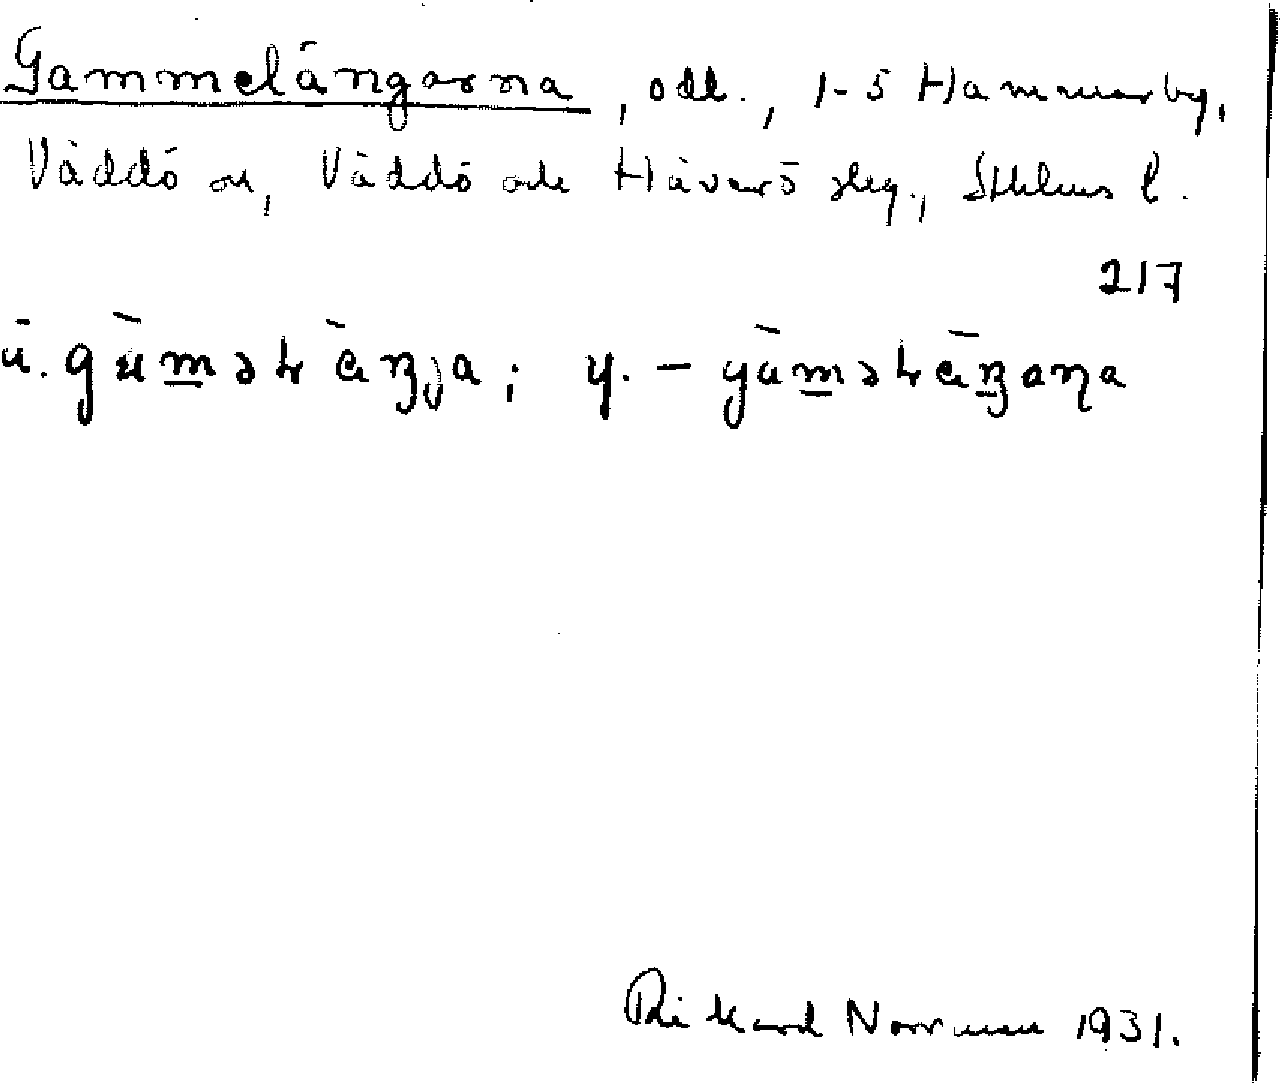 Gammelängarna, odl., 1-5 Hammarby,
Väddö sn, Väddö och Häverö skg., Sthlms l.
217
ä. gàməɬ ä̀ŋja; y. – gàməɬä̀ŋaɳa
Rikard Norrman 1931.